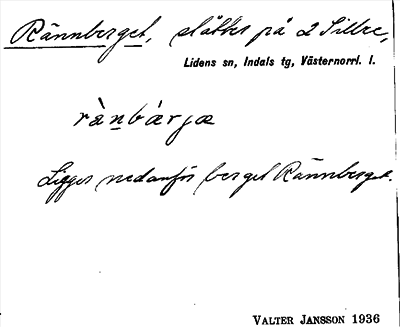 Rännberget, slåtter på 2 Sillre,
Lidens sn, Indals tg, Västernorrl. l.
rànbárjæ
Ligger nedanför berget Rännberget.
VALTER JANSSON 1936